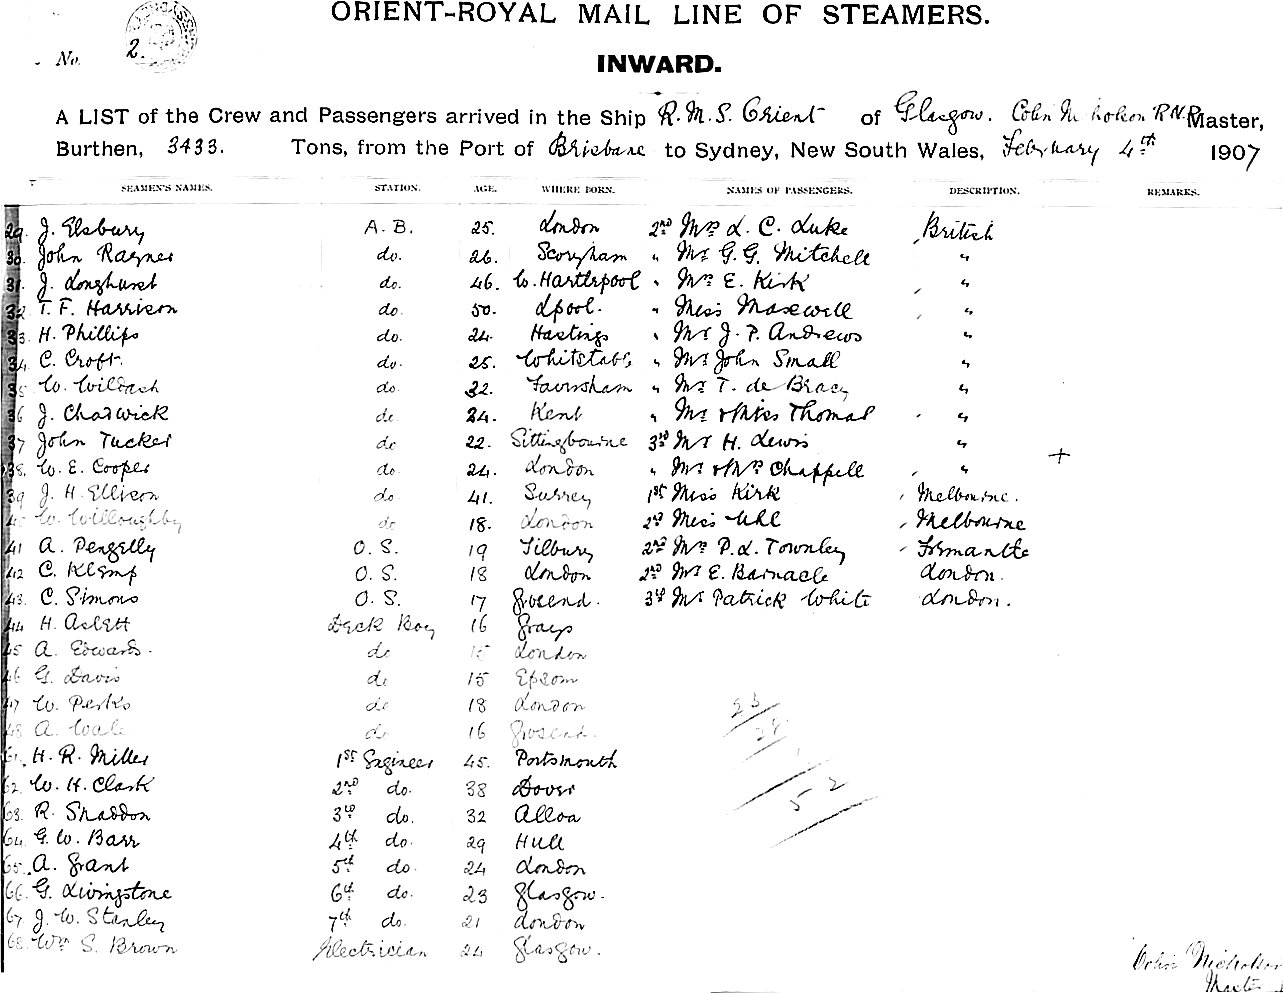 ORIENT-ROYAL MAIL LINE OF STEAMERS.
No. 2.
INWARD.
A LIST of the Crew and Passengers arrived in the Ship R.M.S. Orient of Glasgow. Colin Nicholson RNR Master,
Burthen, 3433. Tons, from the Port of Brisbane to Sydney, New South Wales, February 4th 1907
SEAMEN'S NAMES. STATION. AGE. WHERE BORN. NAMES OF PASSENGERS. DESCRIPTION. REMARKS.
29. J. Elsbury A.B. 25. London 2nd Mrs L. C. Luke British
30. John Rayner do. 26. " Mr G. G. Mitchell "
31. J. Longhurst do. 46. W. Hartlepool " Mrs E. Kirk "
32 T. F. Harrison do. 50. Lpool. " Miss Masewell "
33. H. Phillips do. 24. Hastings " Mr J. P. Andrews "
34 C. Croft. do. 25. Whitstable " Mr John Small "
35 W. Wildash do 32. Faversham " Mr T. de Bracy "
36 J. Chadwick do 24. Kent " Mr & Miss Thomas "
37 John Tucker do 22. Sittingbourne 3rd Mr H. Lewis "
38. W. E. Cooper do 24. London " Mr & Mrs Chappell " +
39 J. H. Ellison do 41. Surrey 1st Miss Kirk Melbourne.
40 W. Willoughby do 18. London 2nd Miss Melbourne
41 A. Pengelly O.S. 19 Tilbury 2nd Mrs P. L. Townley Fremantle
42 C. Klemp O.S. 18 London 2nd Mr E. Barnacle London.
43. C. Simons O.S. 17 Gvesend. 3rd Mr Patrick White London.
44 H. Aslett Deck Boy 16 Grays
45 A. Edwards. do 15 London
46 G. Davis do 15 Epsom
47 W. Perks do 18 London
48 A. Wale do 16 Gvesend.
61. H. R. Miller 1st Engineer 45. Portsmouth
62. W. H. Clark 2nd do. 38 Dover
63. R. Shaddon 3rd do. 32 Alloa
64. G. W. Barr 4th do. 29 Hull
65. A. Grant 5th do. 24 London
66 G. Livingstone 6th do. 23 Glasgow.
67 J. W. Stanley 7th do. 21 London
68. Wm S. Brown Electrician 24 Glasgow.
52
Colin Nicholson
Master